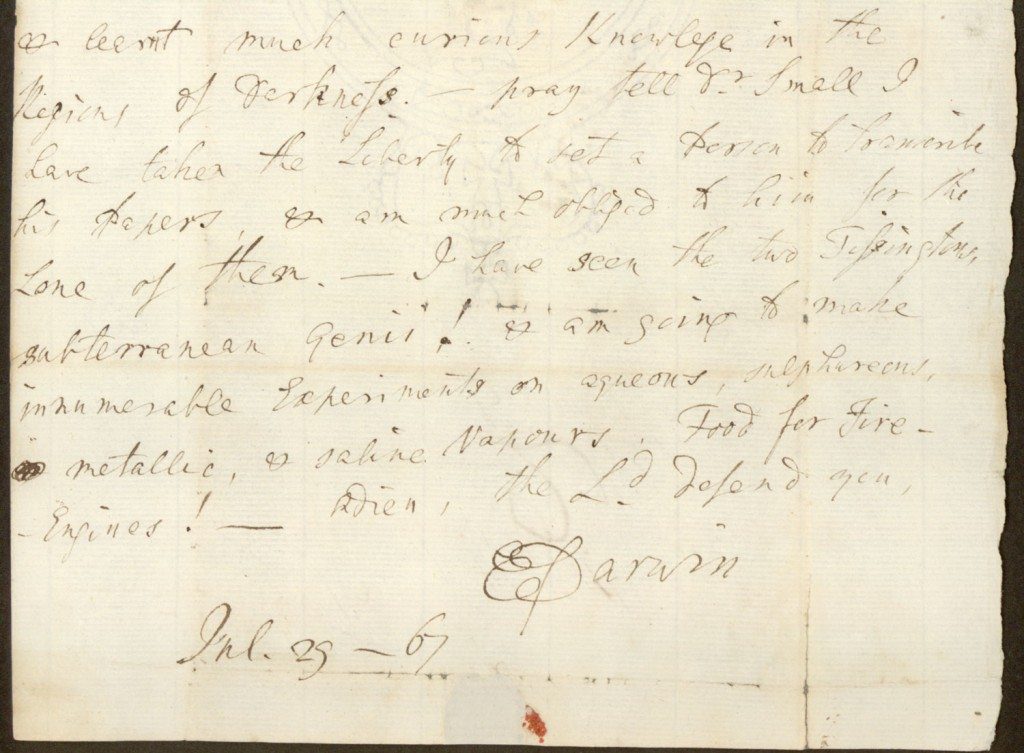 & learnt much curious Knowlege in the
Regions of Darkness. — pray tell Dr. Small I
have taken the Liberty to set a Person to transcribe
his Papers, & am much obliged to him for the
Lone of them. — I have seen the two Tissingtons,
subterranean Genii! & am going to make
innumerable Experiments on aqueous, sulphureous,
metallic, & saline Vapours. Food for Fire-
-Engines! — Adieu, the Ld. defend you,
E Darwin
Jul. 29 — 67